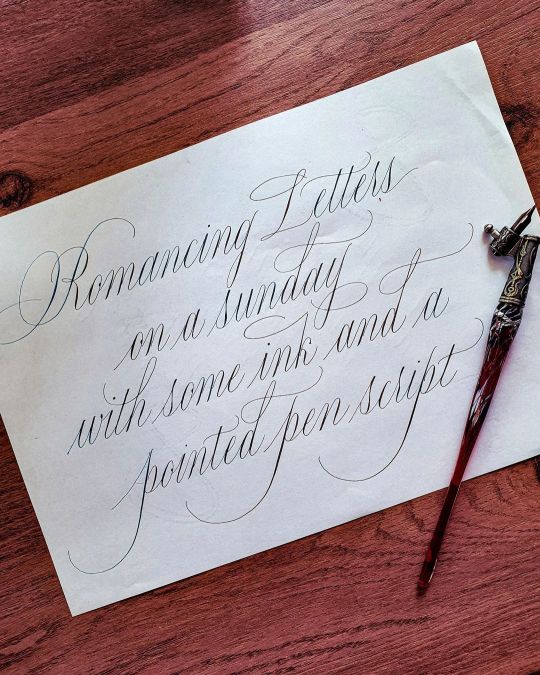 Romancing Letters
on a sunday
with some ink and a
pointed pen script